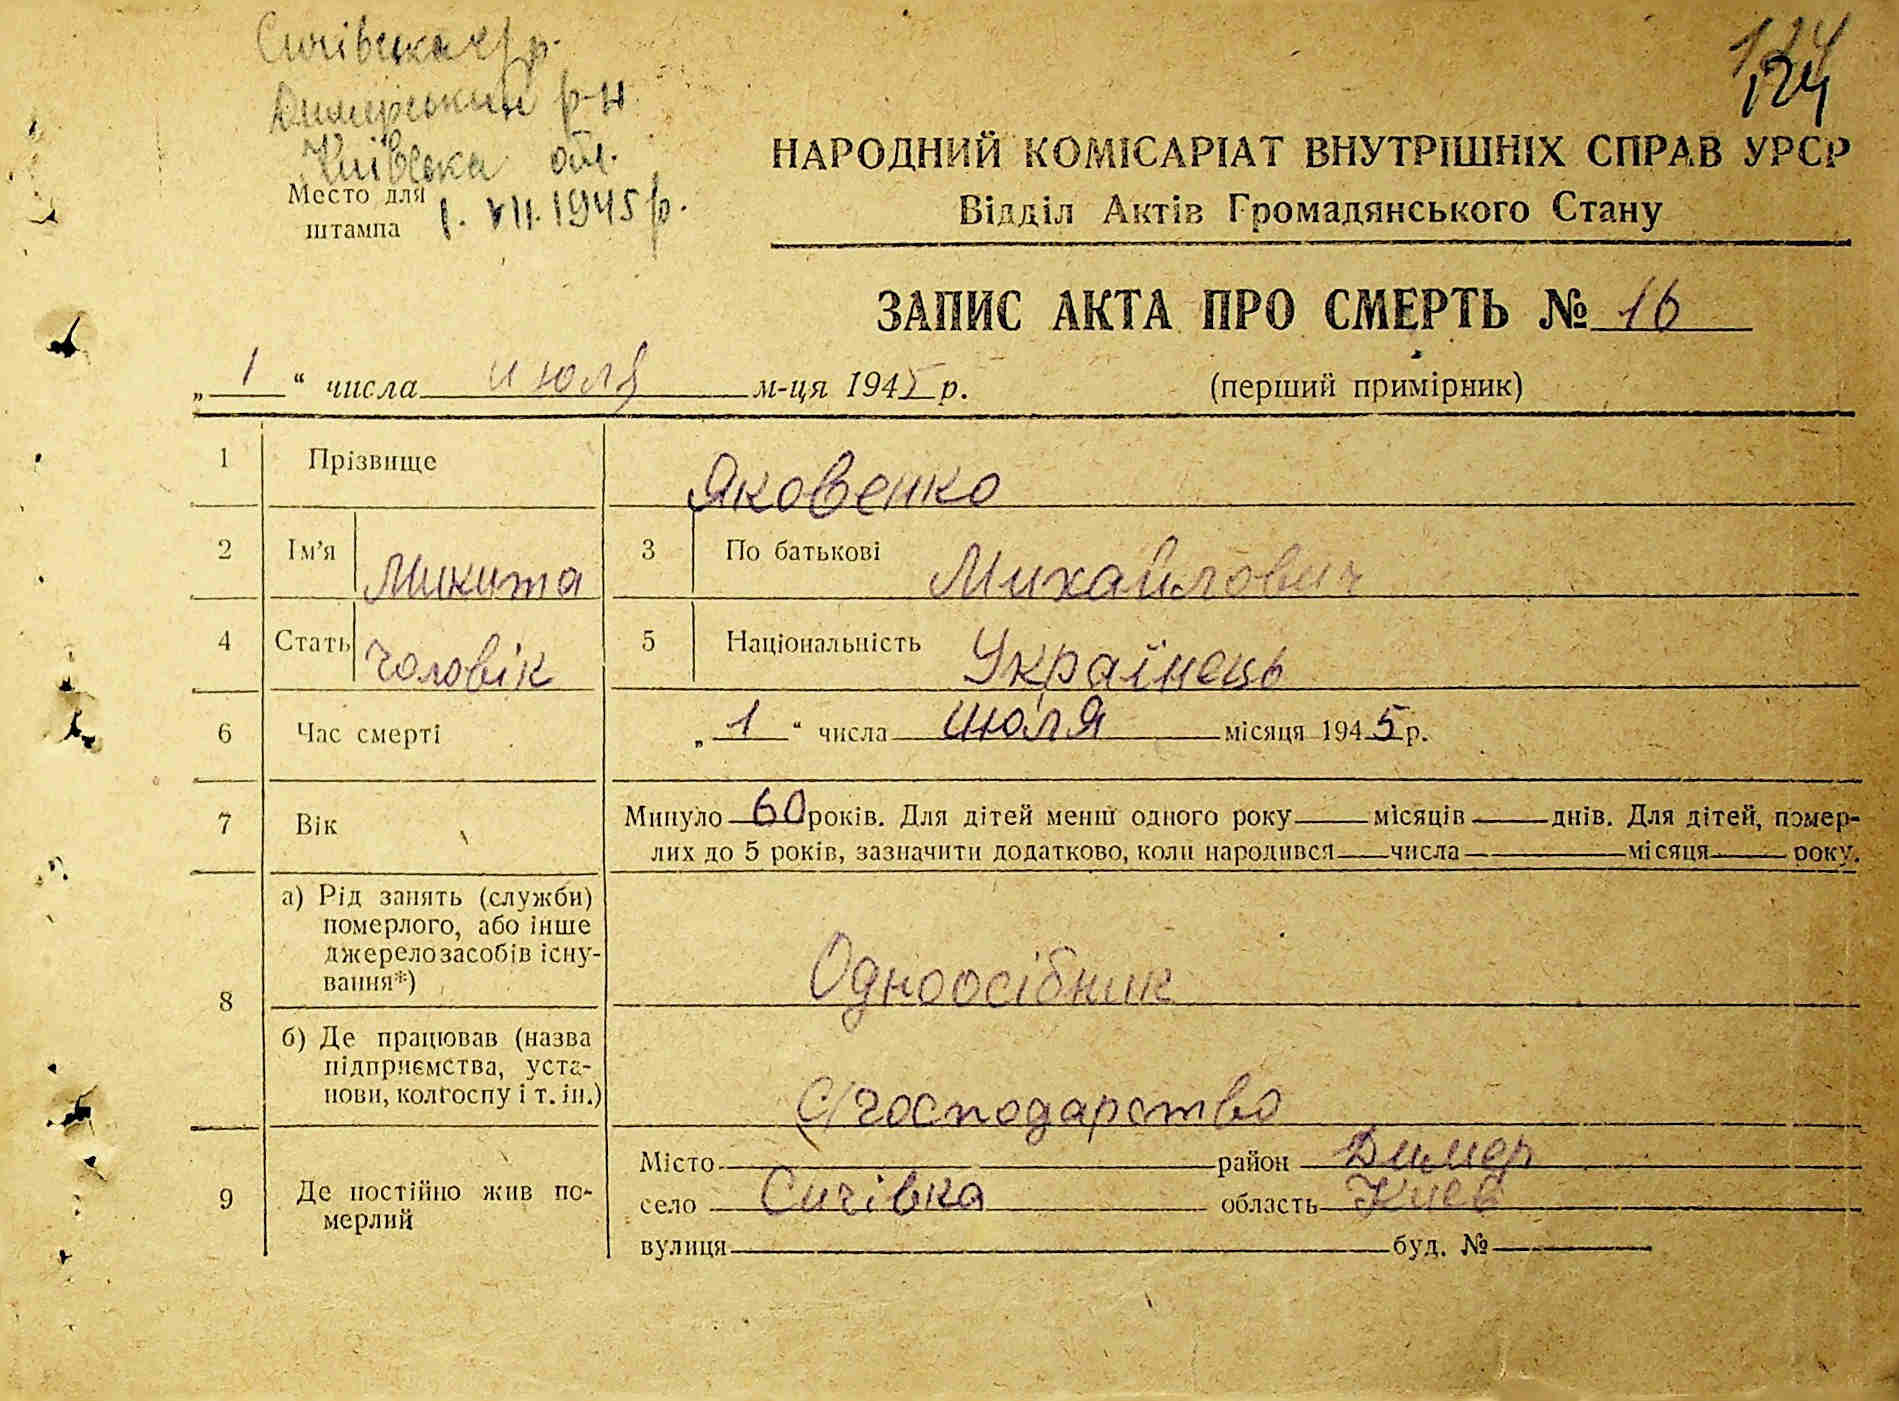 Сичівська с/р.
124
Димерський р-н
124
Київська обл.
Место для штампа
1. VII. 1945 р.
НАРОДНИЙ КОМІСАРІАТ ВНУТРІШНІХ СПРАВ УРСР
Відділ Актів Громадянського Стану
ЗАПИС АКТА ПРО СМЕРТЬ № 16
„ 1 “ числа июля м-ця 1945 р. (перший примірник)
1 Прізвище Яковенко
2 Ім’я Микита 3 По батькові Михайлович
4 Стать Чоловік 5 Національність Українець
6 Час смерті „ 1 “ числа июля місяця 1945 р.
7 Вік Минуло 60 років. Для дітей менш одного року місяців днів. Для дітей, помер-
лих до 5 років, зазначити додатково, коли народився числа місяця року.
8 а) Рід занять (служби)
померлого, або інше
джерело засобів існу-
вання*) Одноосібник
б) Де працював (назва
підприємства, уста-
нови, колгоспу і т. ін.) С/господарство
9 Де постійно жив по-
мерлий
Місто район Димер
село Сичівка область Киев
вулиця буд. №